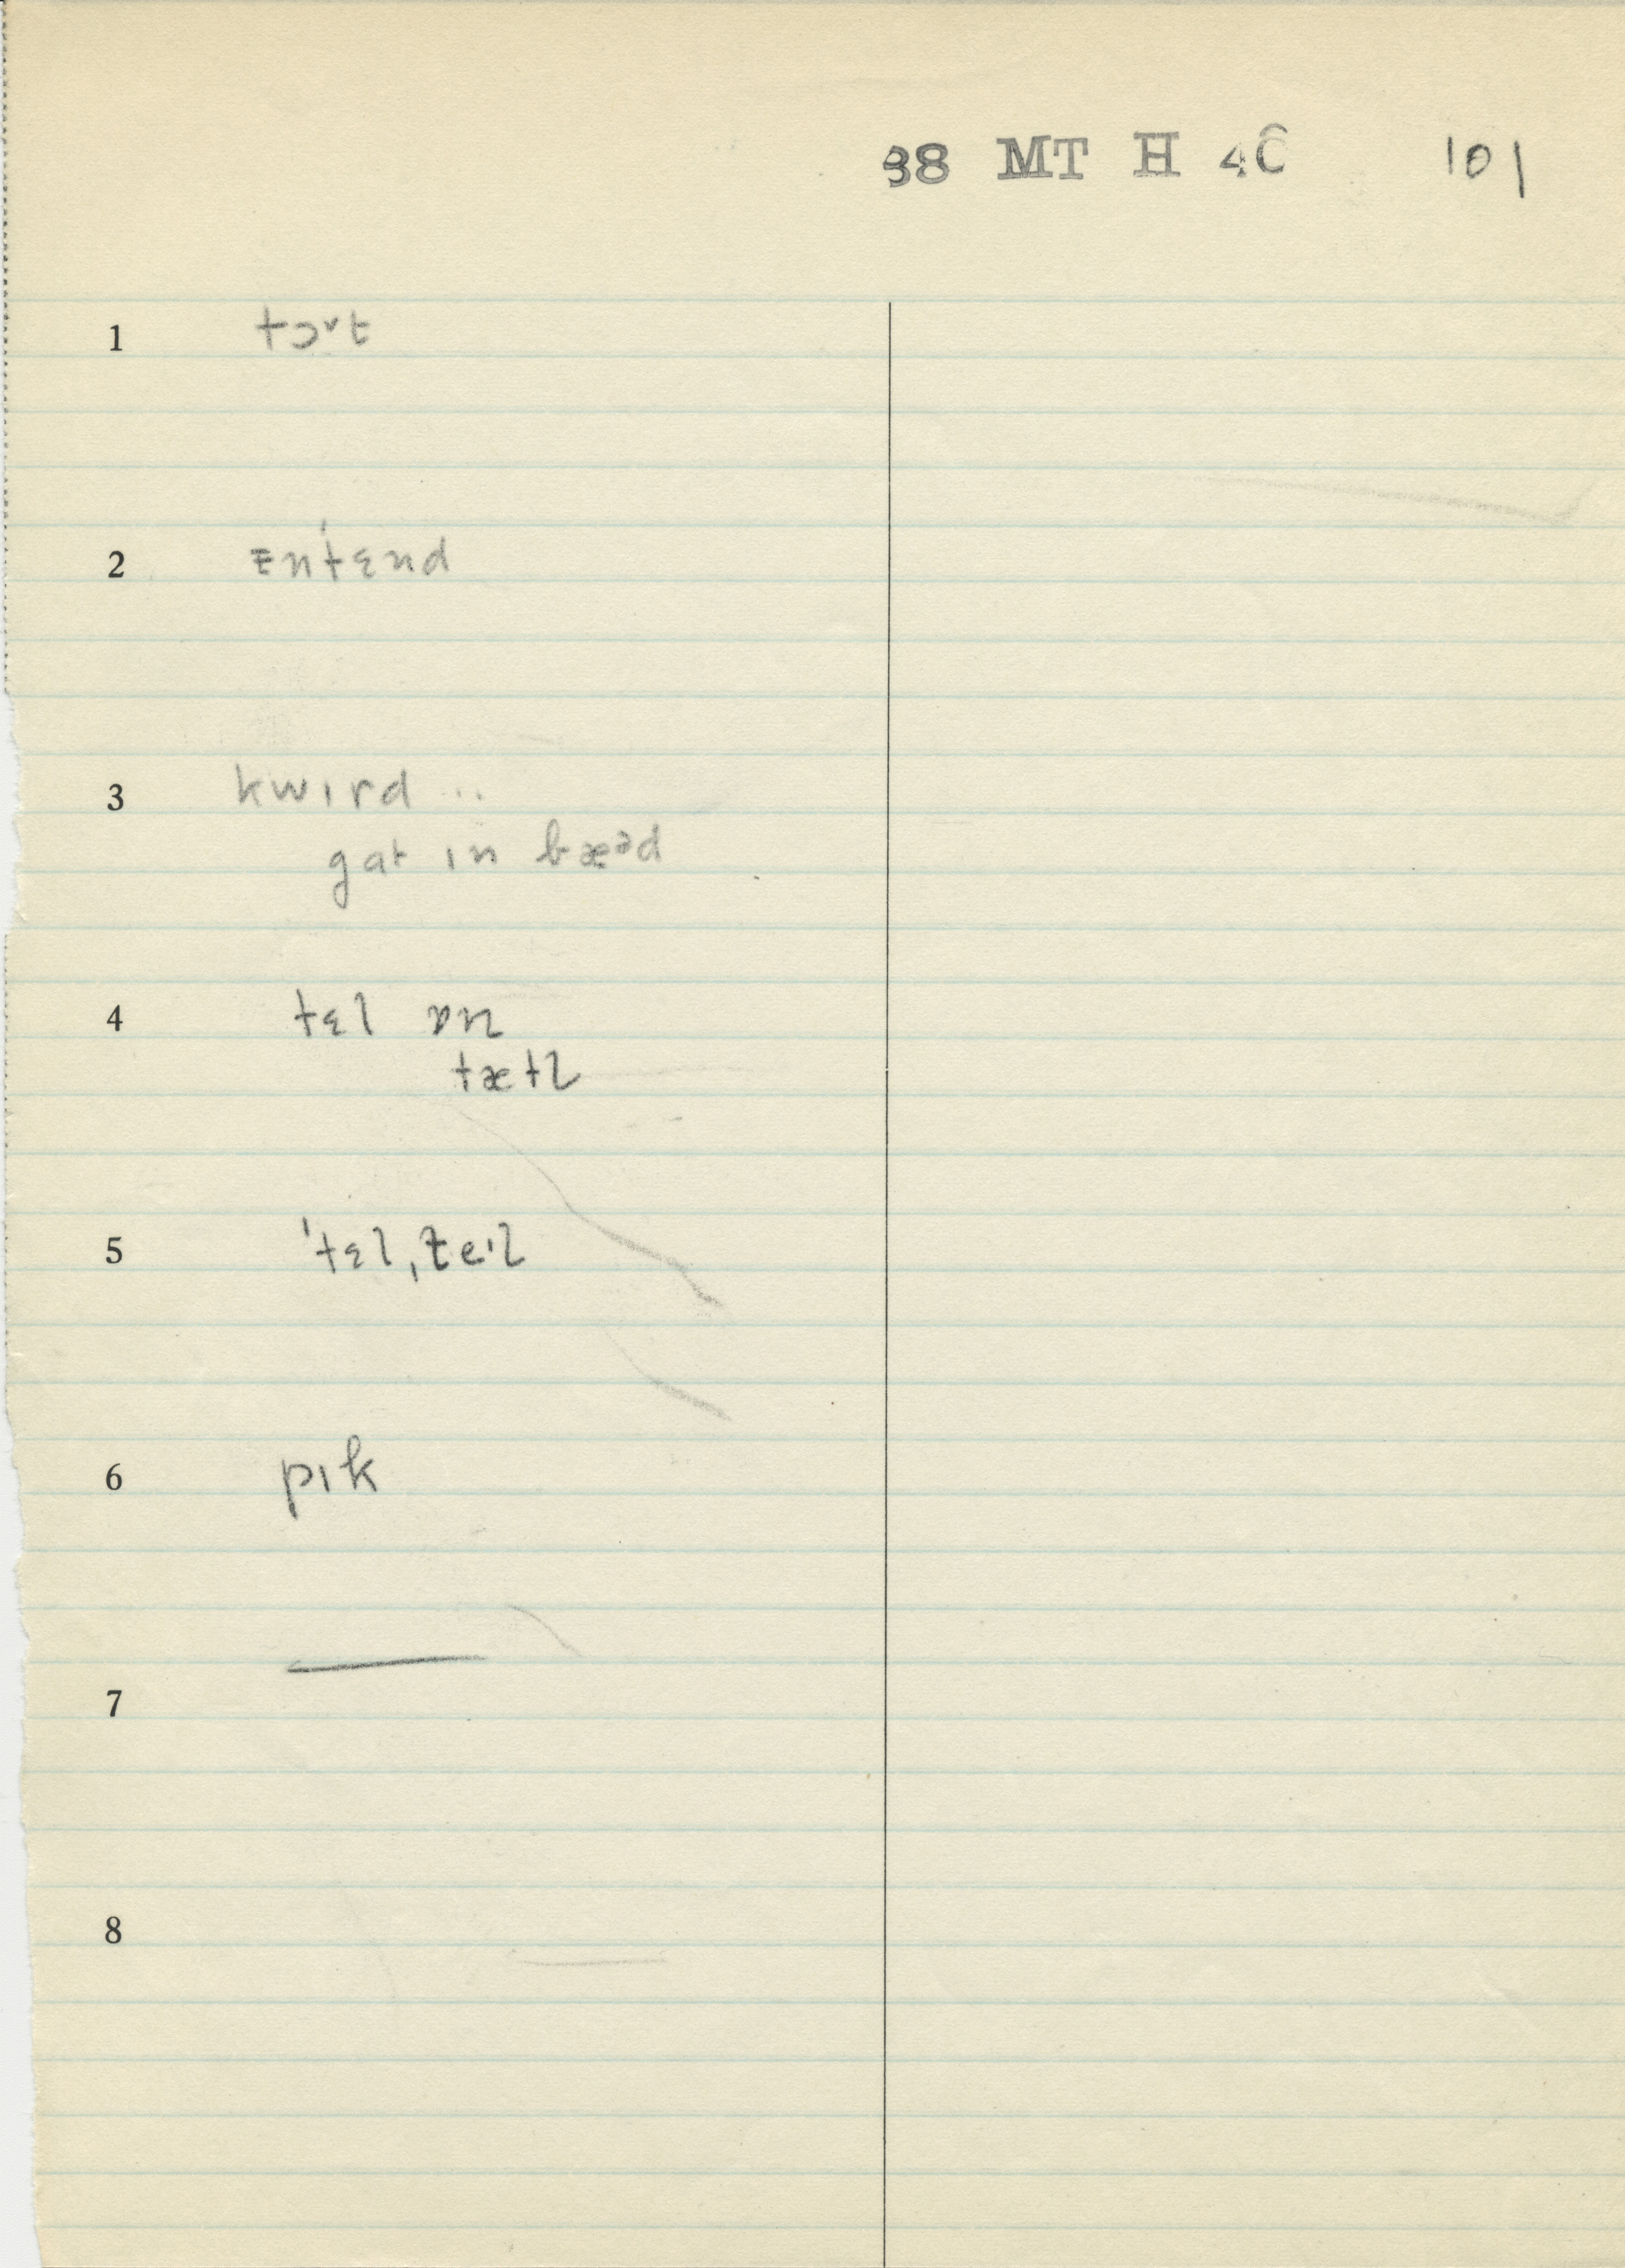 38 MT H 46 101
1 tɔ˅t
2 ɪnˈtɛnd
3 kwɪrd ..
gat ɪn bæᵊd
4 tɛl ɒn
tætl
5 ˈtɛlˌt̬eˑl
6 pɪk
7 —
8